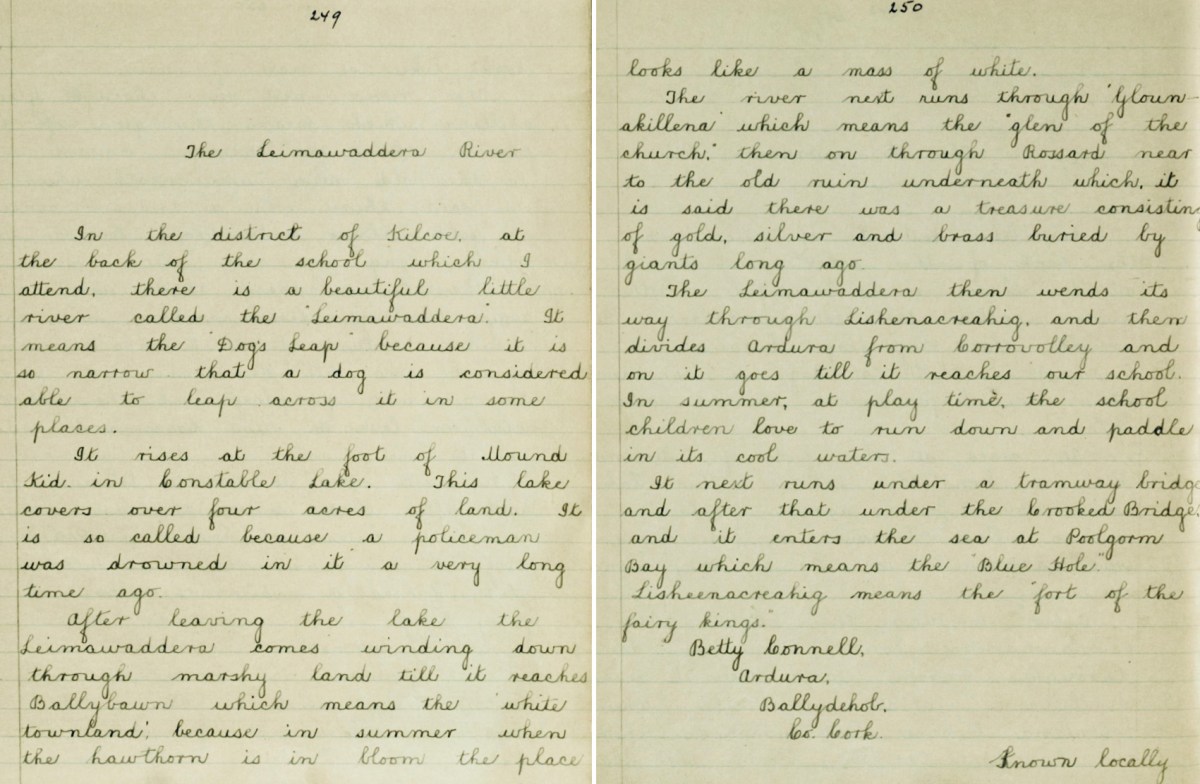 249
The Leimawaddera River
In the district of Kilcoe, at
the back of the school which I
attend, there is a beautiful little
river called the "Leimawaddera". It
means the "Dog's Leap" because it is
so narrow that a dog is considered
able to leap across it in some
places.
It rises at the foot of Mound
Kid in Constable Lake. This lake
covers over four acres of land. It
is so called because a policeman
was drowned in it a very long
time ago.
After leaving the lake the
Leimawaddera comes winding down
through marshy land till it reaches
Ballybawn which means the "white
townland", because in summer when
the hawthorn is in bloom the place
250
looks like a mass of white.
The river next runs through "Gloun-
akillena" which means the "glen of the
church," then on through Rossard near
to the old ruin underneath which, it
is said there was a treasure consisting
of gold, silver and brass buried by
giants long ago.
The Leimawaddera then wends its
way through Lishenacreahig, and then
divides Ardura from Corrovolley and
on it goes till it reaches our school.
In summer, at play time, the school
children love to run down and paddle
in its cool waters.
It next runs under a tramway bridge
and after that under the Crooked Bridge,
and it enters the sea at Poolgorm
Bay which means the "Blue Hole."
Lisheenacreahig means the "fort of the
fairy kings."
Betty Connell,
Ardura,
Ballydehob,
Co. Cork.
Known locally